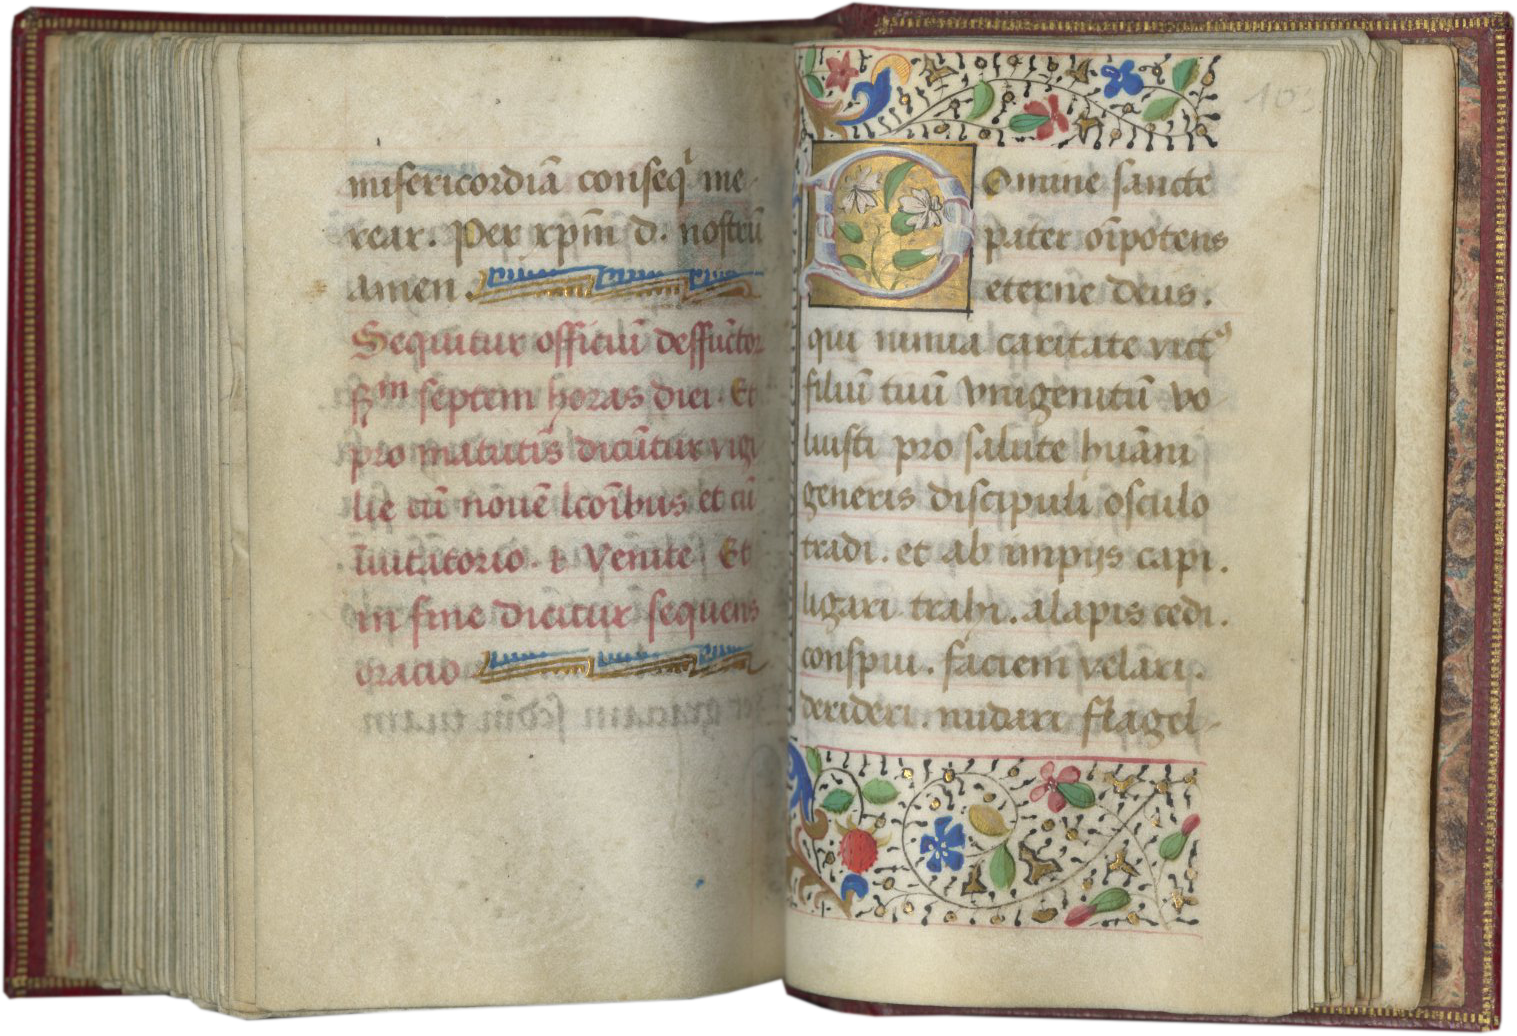 misericordiā conseqͥ me
rear. Per xp̄m d. nostrū
amen.
Sequitur officiū deffūctor
septem horas diei. Et
pro matutīs dicūtur vigi
lie cū nouē lcōībus et cū
īuitatorio. Venite. Et
in fine dicitur sequens
oracio
103
Domine sancte
pater oīpotens
eterne deus.
qui nimia caritate vict᷒
filiū tuū vnigenitū vo
luisti pro salute huāni
generis discipuli osculo
tradi. et ab impijs capi.
ligari trahi. alapis cedi.
conspui. faciem velari.
derideri. nudari flagel